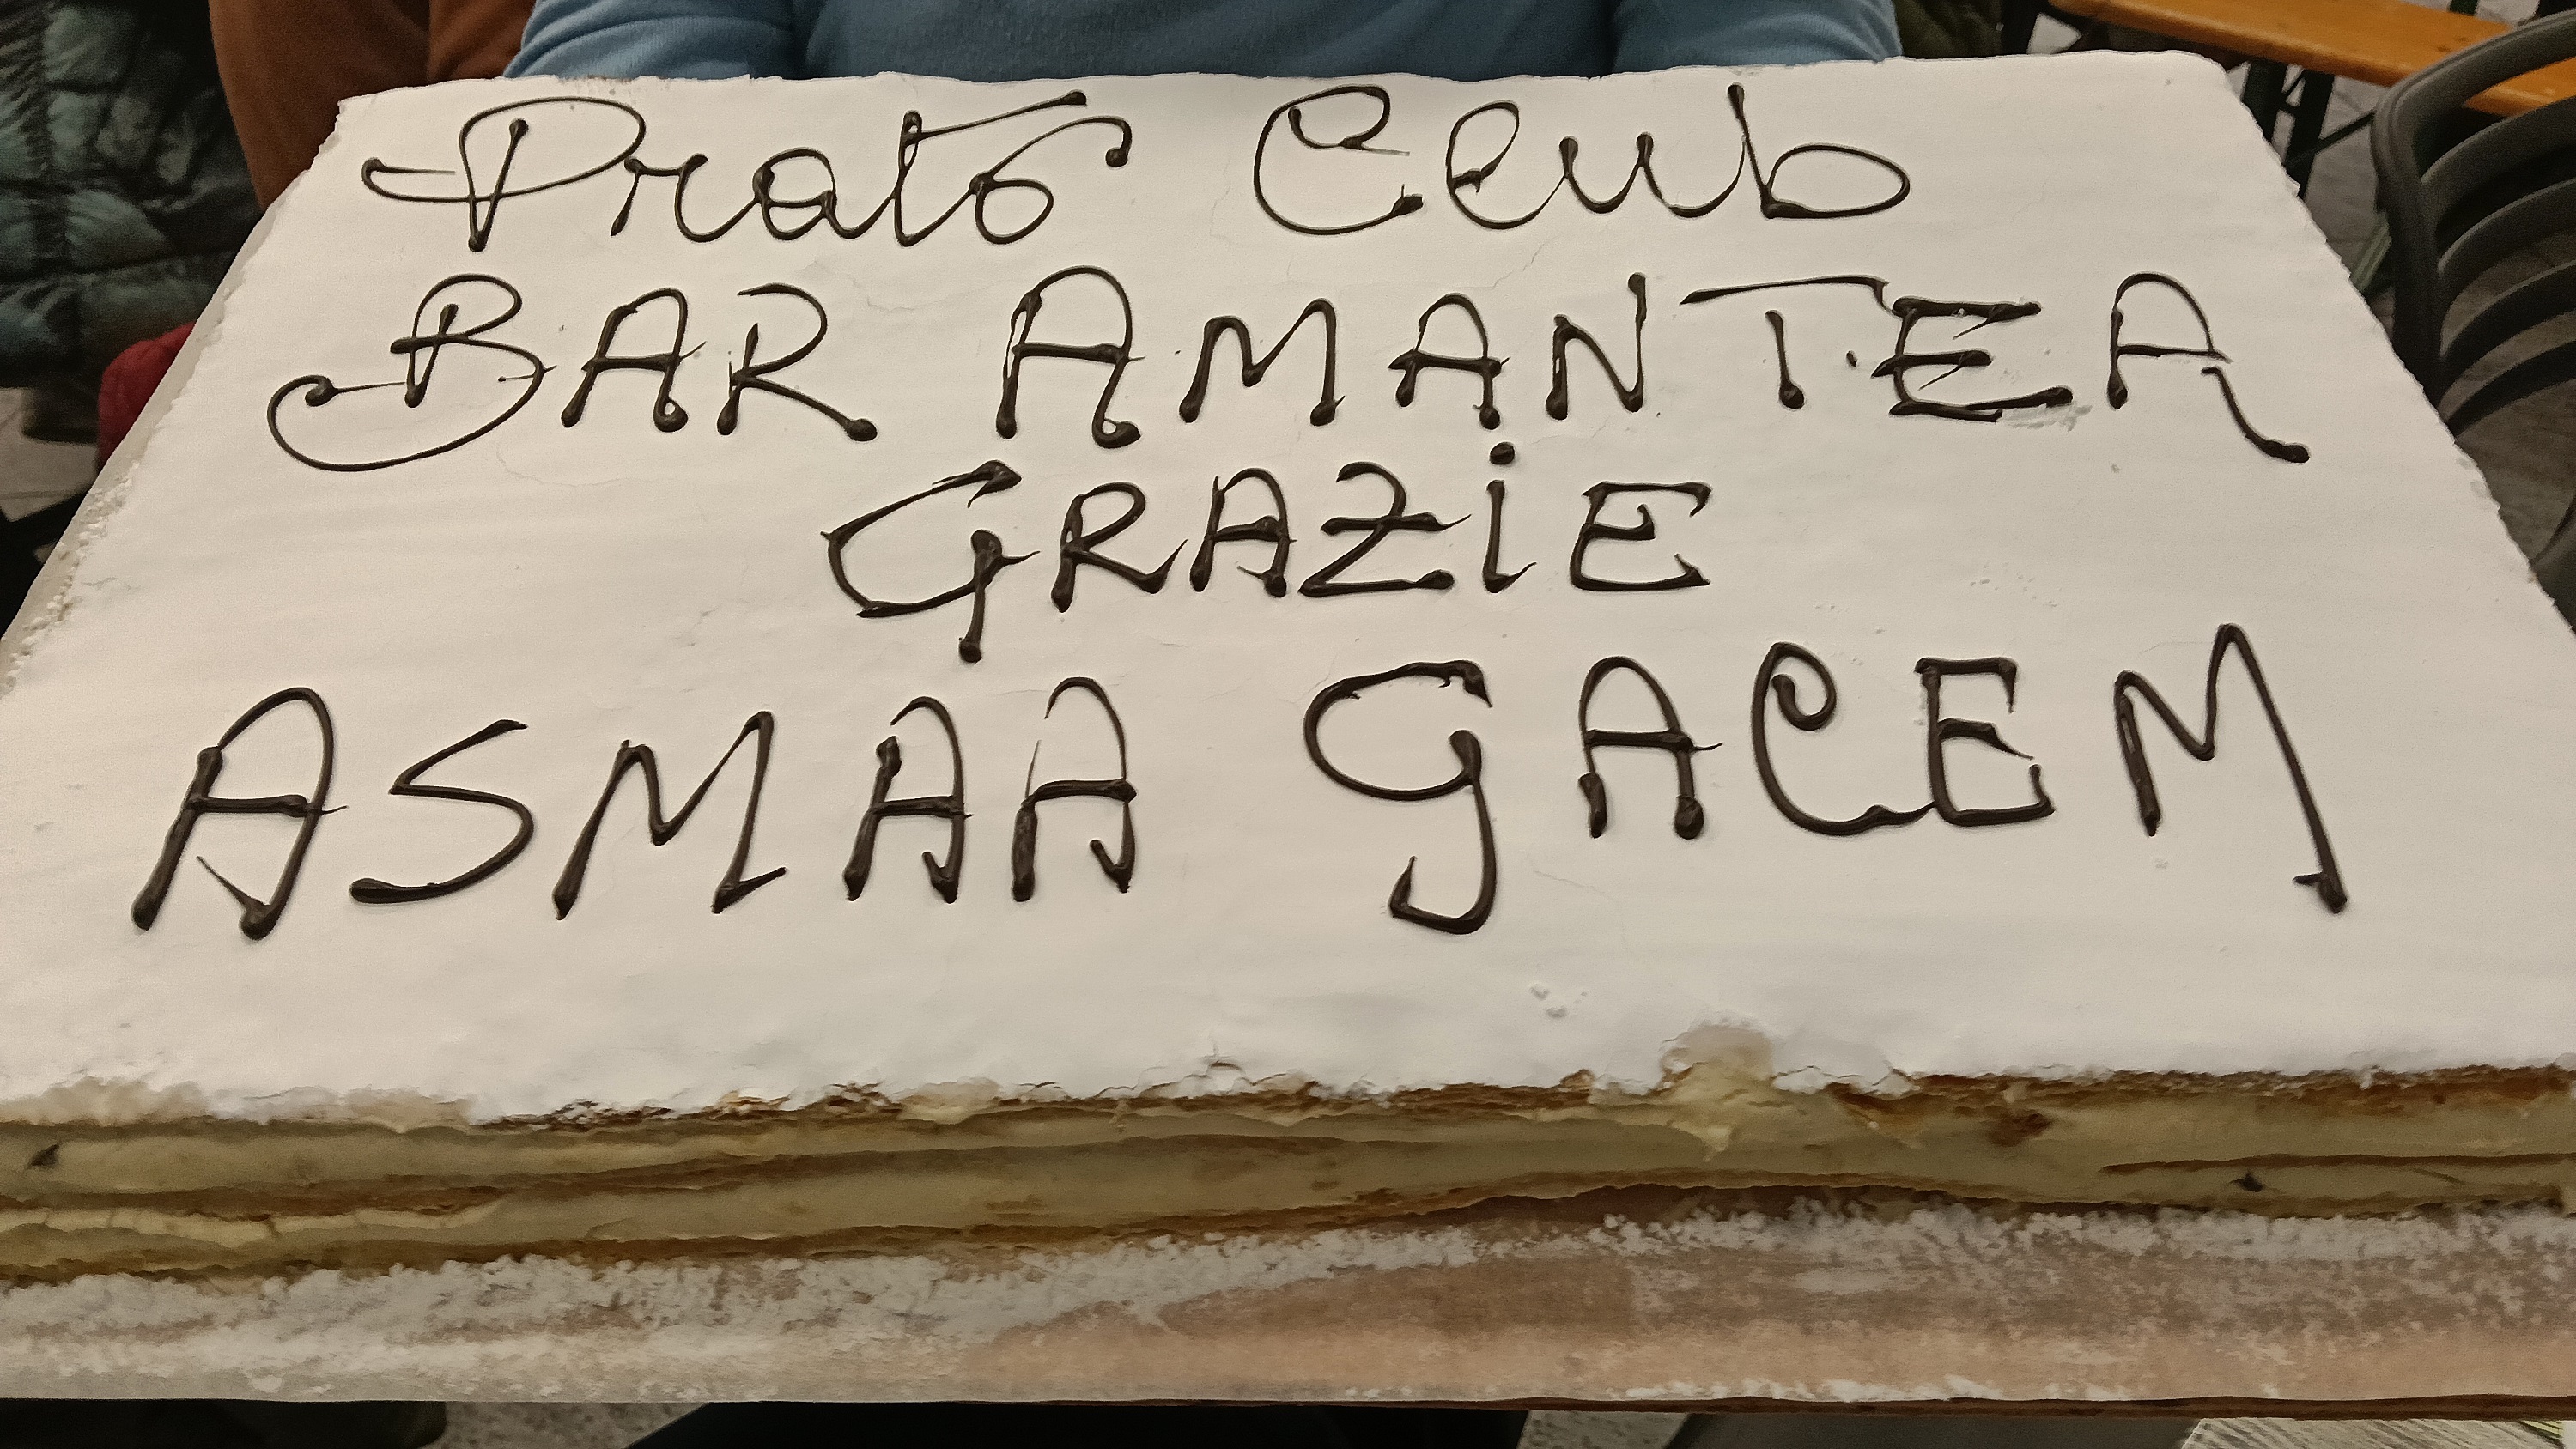 Prato Club
BAR AMANTEA
GRAZiE
ASMAA GACEM